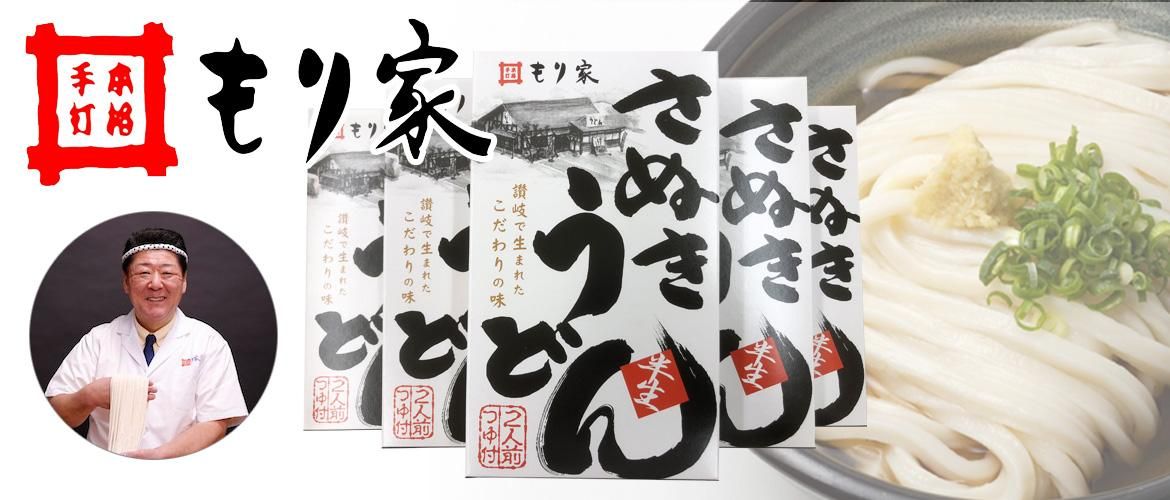 本格
手打
もり家
本格
手打
もり家
さぬき
うどん
讃岐で生まれた
こだわりの味
半生
2人前
つゆ付
うどん
もり
讃岐で生まれた
こだわりの味
ど
2人前
つゆ付
讃岐で生まれた
こだわりの味
ど
2人前
つゆ付
さぬき
半生
さぬき
半生